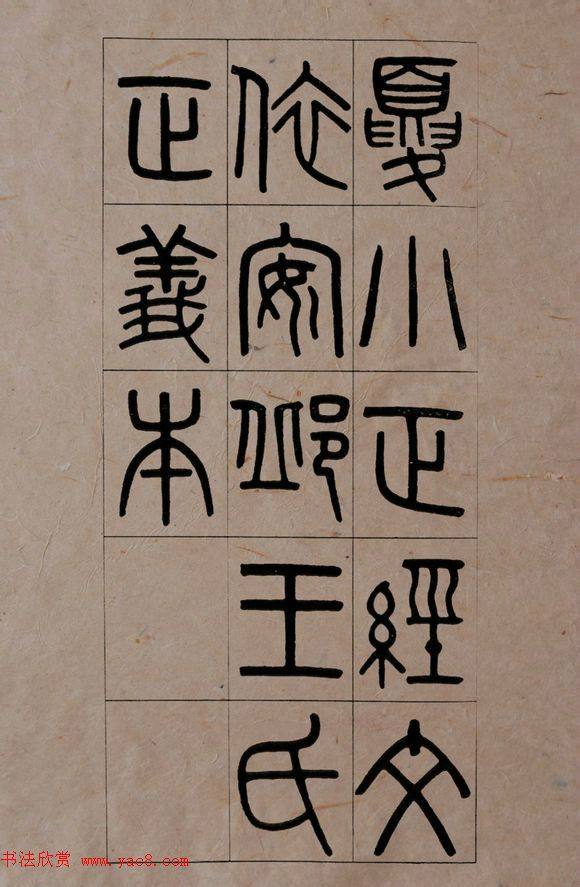 夏小正經文
依安邱王氏
正義本
书法欣赏 www.yac8.com